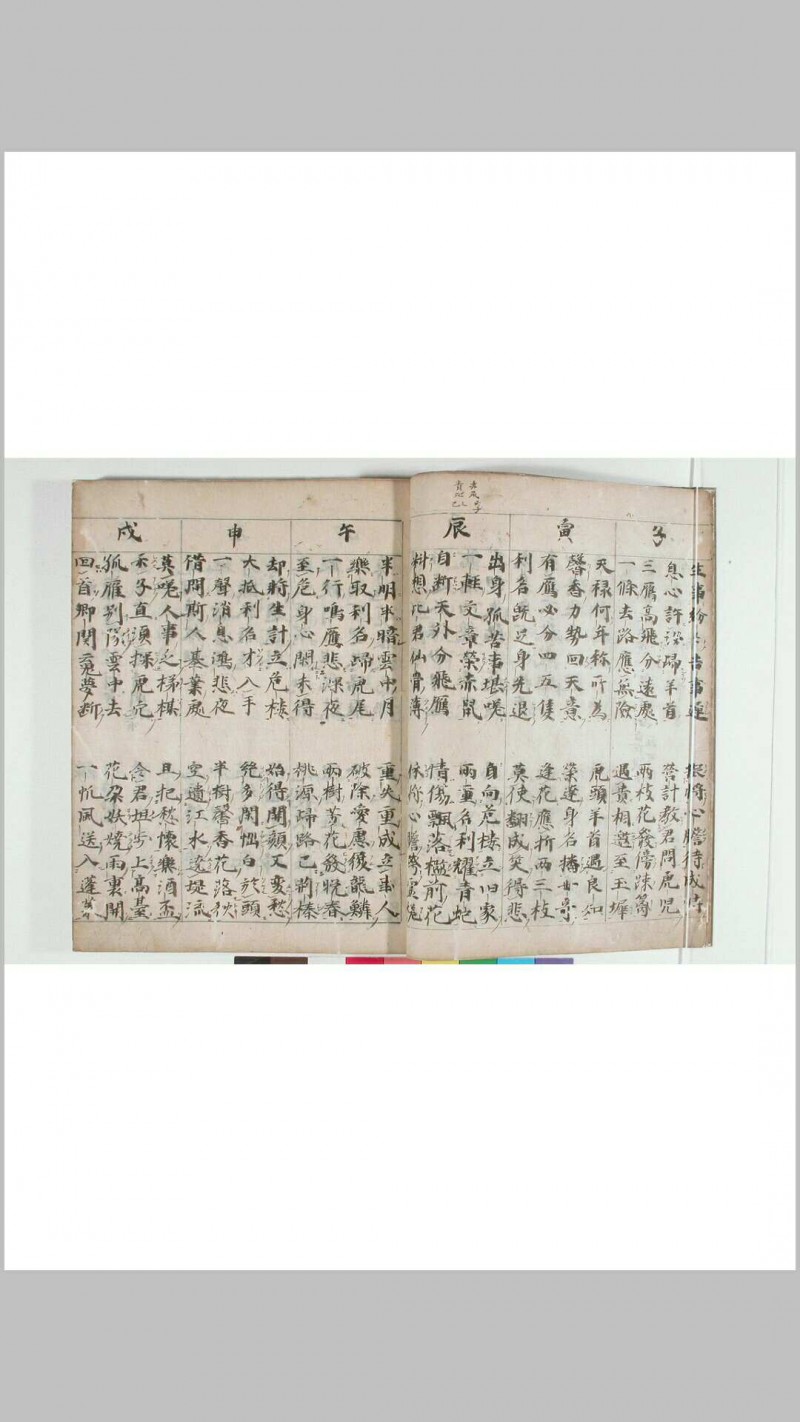 子
生事紛　事
息心許　歸羊首　營計教君問虎兒
三鴈高飛分遠處　兩枝花發傍踈籬
一條去路應無險　遇貴相邀至玉墀
寅
天祿何年称所為　虎頭羊首遇良知
馨香力勢回天意　榮達身名播
有鴈必分四五隻　逢花應折兩三枝
利名既足身先退　莫使翻成笑得悲
辰
出身孤苦事堪嗟　自向危樓立旧家
一輕文章榮赤鼠　兩重名利耀青蛇
自断天外分飛鴈　情傷飄落檻前花
料想　君仙骨薄　休將心
午
半明半暗雲中月　重失重成立事人
樂取利名歸虎尾　破除憂慮後龍鱗
一行鳴鴈悲深夜　兩樹黃花發晚春
至危身心閑未得　桃源歸路已荊榛
申
却將生計立危樓　始得開顏又変愁
大抵利名才入手　絶多閑恤白於頭
一聲消息鴻悲夜　半樹馨香花落秋
借問斯人棊葉處　空遶江水遶堤流
戌
莫嗟人事之梯棋　且把愁懷樂酒盃
禾子直須探虎穴　念君坦步上高臺
孤雁别隊雲中去　花朶妖嬈雨裏開
回首鄉関魂夢断　一帆風送入蓬萊